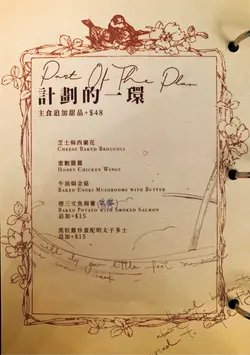 Part Of The Plan
計劃的一環
主食追加甜品+$48
芝士焗西蘭花
Cheese Baked Broccoli
蜜糖雞翼
Honey Chicken Wings
牛油焗金菇
Baked Enoki Mushrooms with Butter
煙三文魚焗薯
Baked Potato with Smoked Salmon
追加+$15
黑松露炒蛋配明太子多士
追加+$15